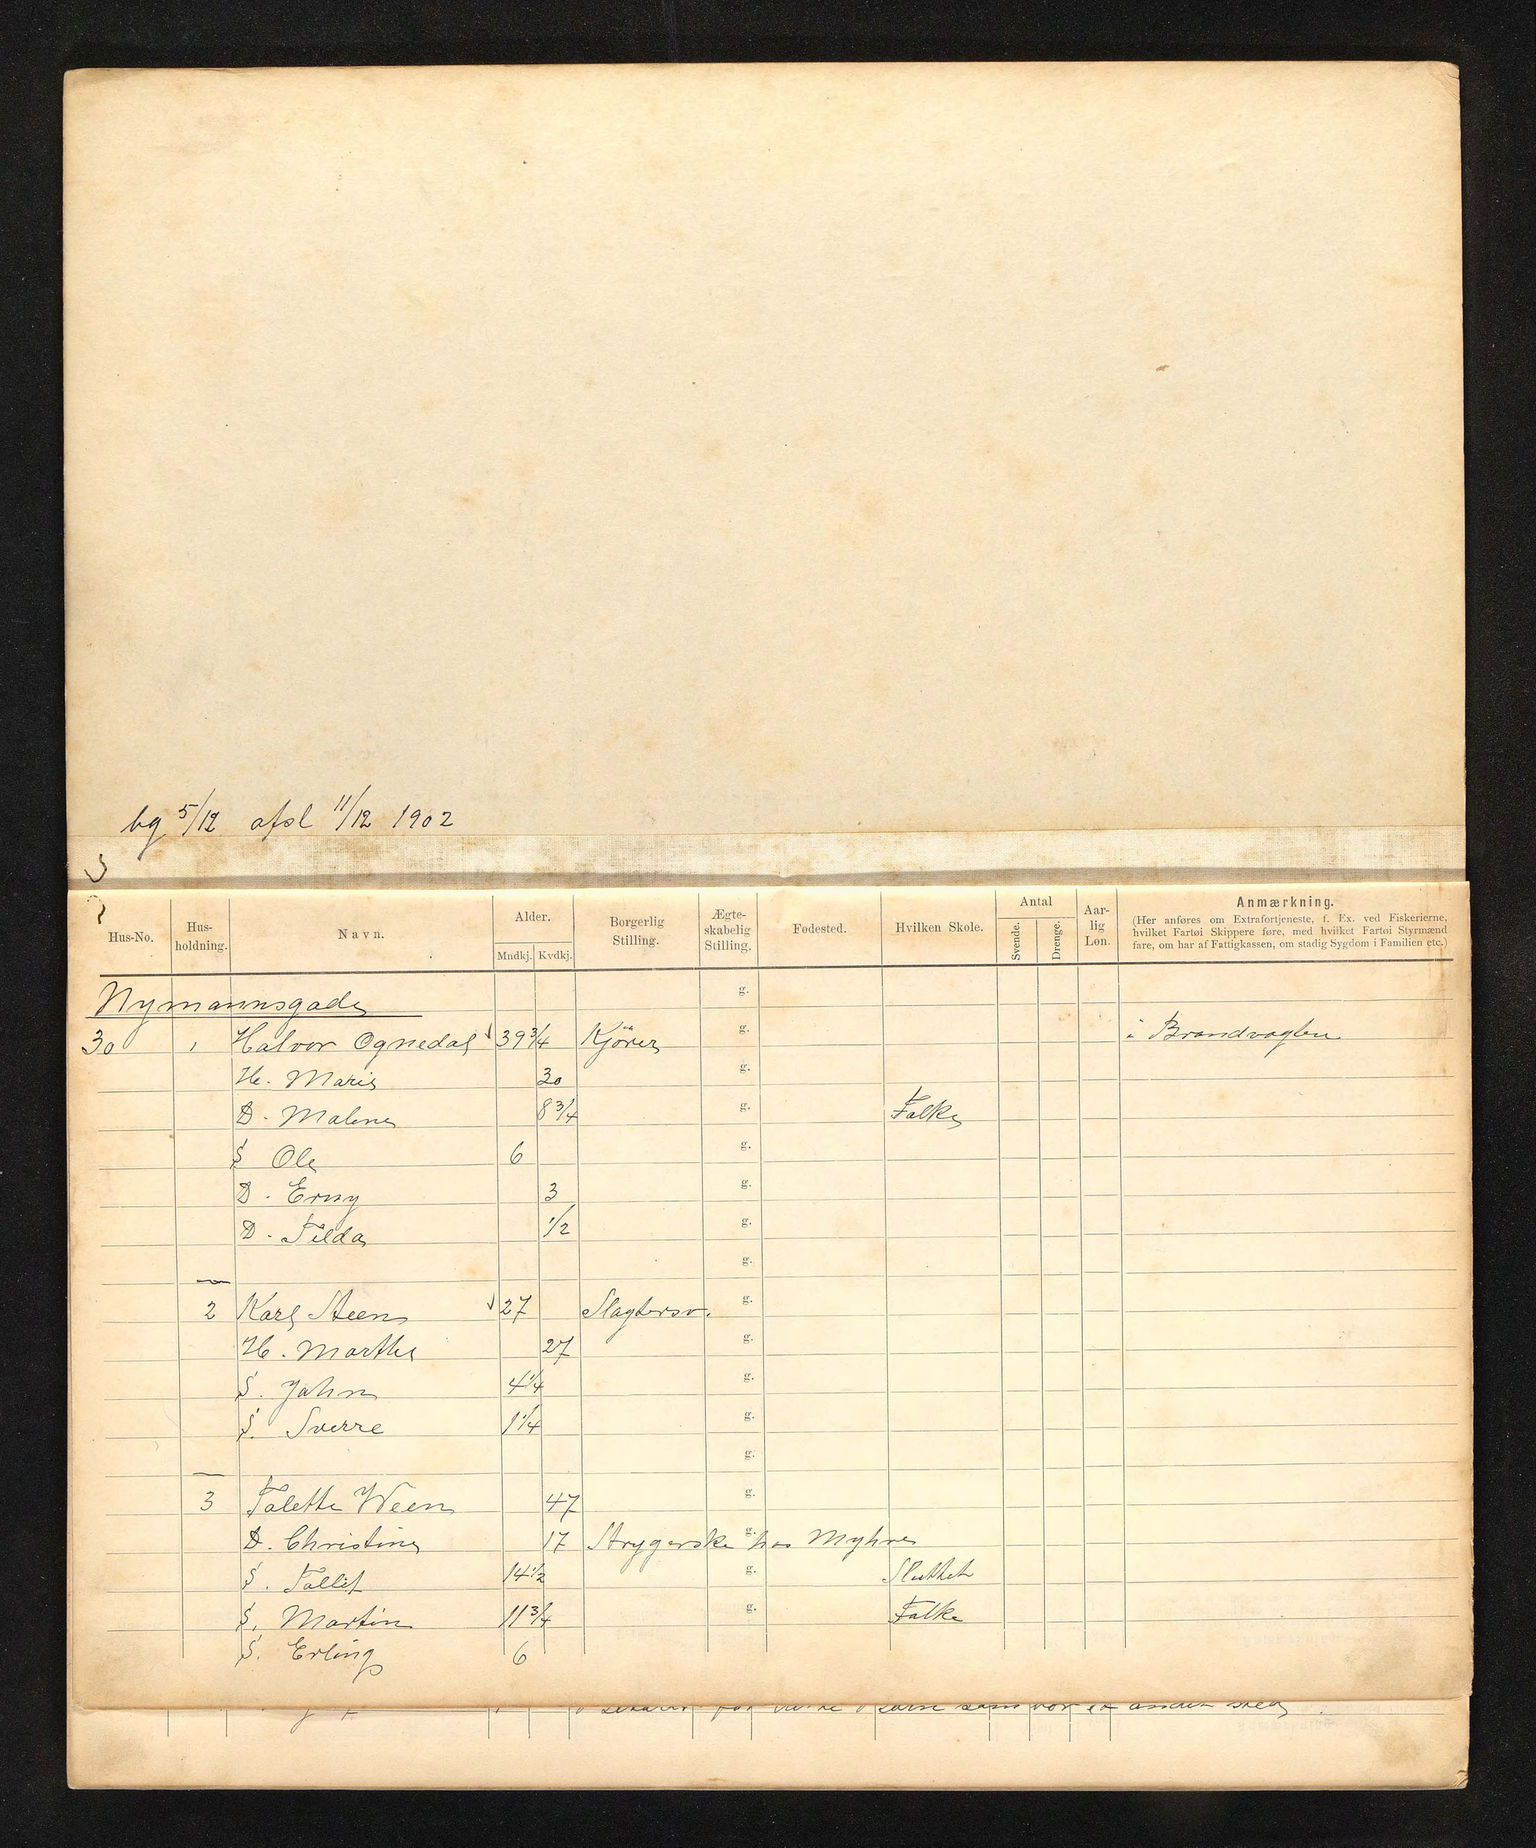 bg 5/12 afsl 11/12 1902
Hus-No. Hus-holdning. Navn. Alder. Mndkj. Kvdkj. Borgerlig Stilling. Ægte-skabelig Stilling. Fødested. Hvilken Skole. Antal Svende. Drenge. Aar-lig Løn. Anmærkning.
(Her anføres om Extrafortjeneste, f. Ex. ved Fiskerierne,
hvilket Fartøi Skippere føre, med hvilket Fartøi Styrmænd
fare, om har af Fattigkassen, om stadig Sygdom i Familien etc.)
Nymannsgade g.
30 1 Halvor Ognedal 39 3/4 Kjører g. i Brandvagten
H. Marie 30 g.
D. Malene 8 3/4 g. Folke
S Ole 6 g.
D. Erny 3 g.
D. Tilda 1/2 g.
g.
2 Karl Steen 27 Slagtersv. g.
H. Marthe 27 g.
S. John 4 1/4 g.
S. Sverre 1 1/4 g.
g.
3 Talette Ween 47 g.
D. Christine 17 Strygerske hos Myhre g.
S. Tallit 14 1/2 g. Sluttet
S. Martin 11 3/4 g. Folke
S. Erling 6
som bor et andet sted